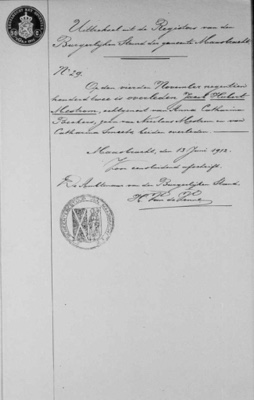 Uittreksel uit de Registers van den
Burgerlijken Stand der gemeente Maasbracht
N: 29.
Op den vierden November negentien
honderd twee is overleden Jacob Hubert
echtgenoot van Anna Catharina
zoon van en van
Catharina Smeets, beiden overleden.
Maasbracht, den 13 Juni 1912.
Voor eensluidend afschrift,
De Ambtenaar van den Burgerlijken Stand,